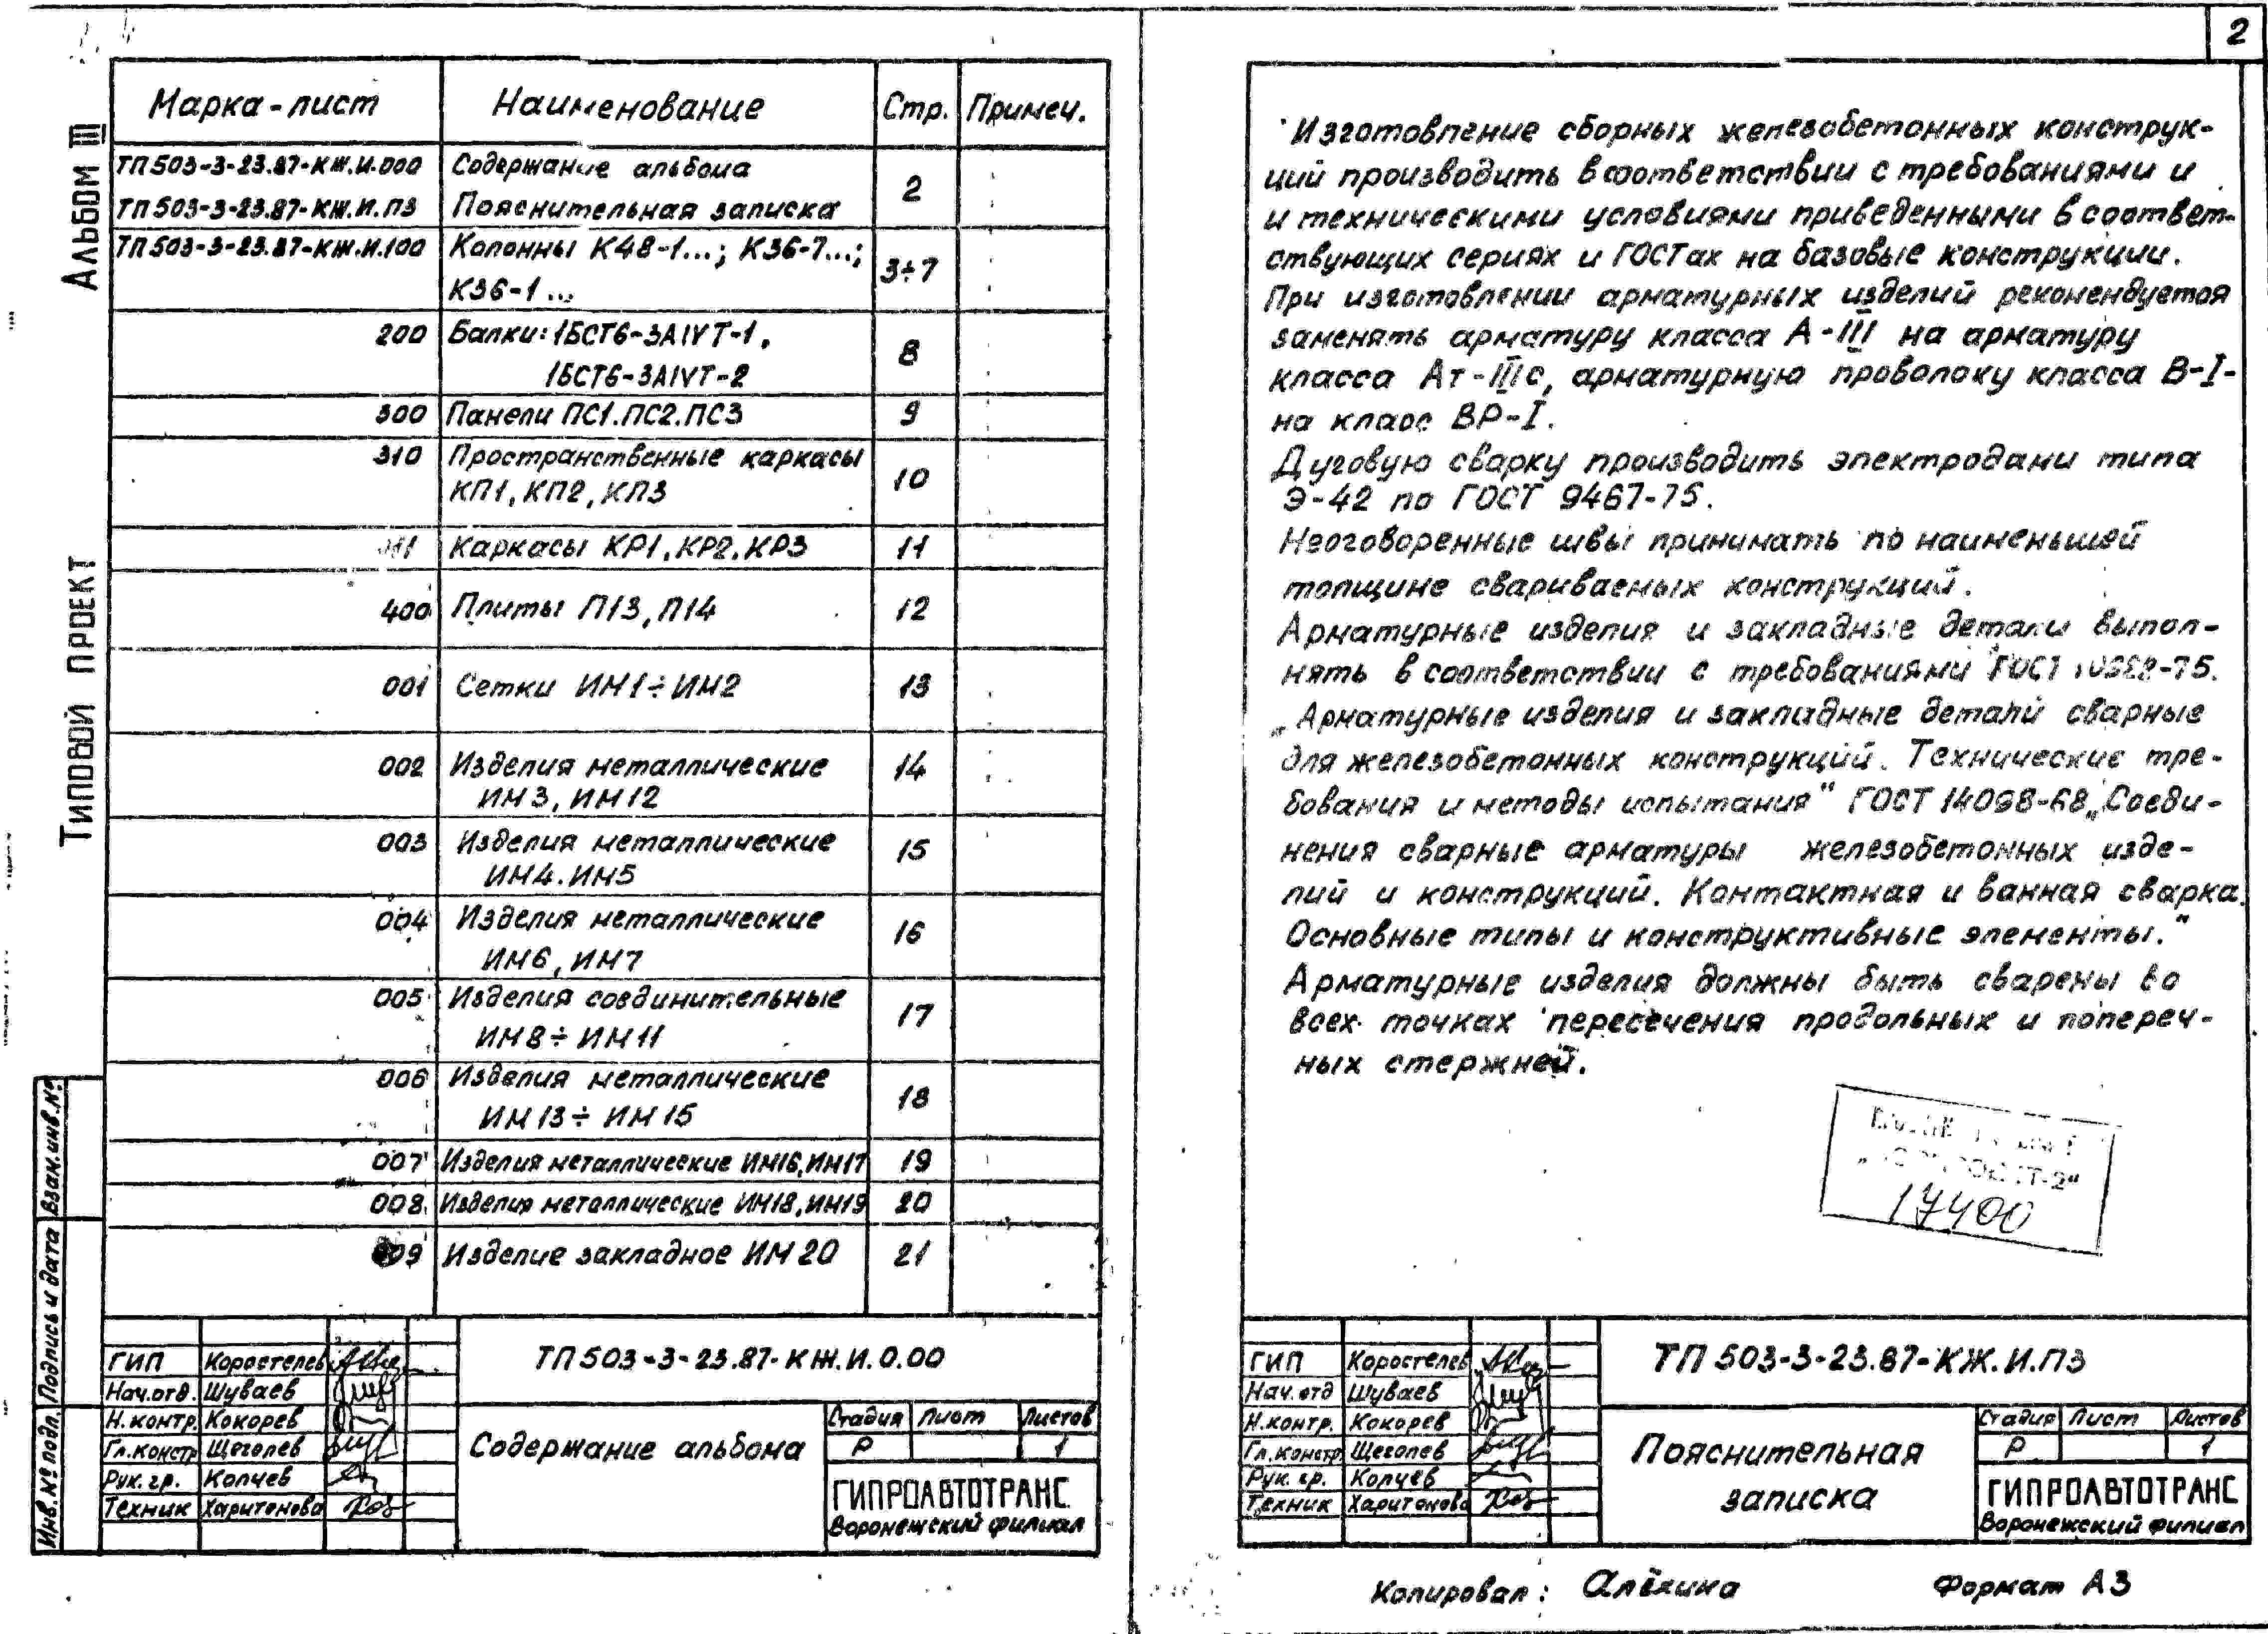 2
Альбом III
Типовой проект
Марка-лист Наименование Стр. Примеч.
ТП 503-3-23.87-КЖ.И.000 Содержание альбома 2
ТП 503-3-23.87-КЖ.И.ПЗ Пояснительная записка
ТП 503-3-23.87-КЖ.И.100 Колонны К48-1...; К36-7...; 3÷7
К36-1...
200 Балки: 1БСТ6-3АIVТ-1, 8
1БСТ6-3АIVТ-2
300 Панели ПС1.ПС2.ПС3 9
310 Пространственные каркасы 10
КП1, КП2, КП3
Каркасы КР1, КР2, КР3 11
400 Плиты П13, П14 12
001 Сетки ИМ1÷ИМ2 13
002 Изделия металлические 14
ИМ3, ИМ12
003 Изделия металлические 15
ИМ4. ИМ5
004 Изделия металлические 16
ИМ6, ИМ7
005 Изделия соединительные 17
ИМ8÷ИМ11
006 Изделия металлические 18
ИМ13÷ИМ15
007 Изделия металлические ИМ16, ИМ17 19
008 Изделия металлические ИМ18, ИМ19 20
009 Изделие закладное ИМ20 21
Взам.инв.№
Подпись и дата
Инв.№ подл.
ГИП Коростелев
Нач.отд. Шуваев
Н.контр. Кокорев
Гл.констр Щеголев
Рук. гр. Колчев
Техник Харитонова
ТП 503-3-23.87-КЖ.И.0.00
Содержание альбома
Стадия Лист Листов
Р 1
ГИПРОАВТОТРАНС
Воронежский филиал
Изготовление сборных железобетонных конструк-
ций производить в соответствии с требованиями и
и техническими условиями приведенными в соответ-
ствующих сериях и ГОСТах на базовые конструкции.
При изготовлении арматурных изделий рекомендуется
заменять арматуру класса А-III на арматуру
класса Ат-IIIс, арматурную проволоку класса В-I-
на класс ВР-I.
Дуговую сварку производить электродами типа
Э-42 по ГОСТ 9467-75.
Неоговоренные швы принимать по наименьшей
толщине свариваемых конструкций.
Арматурные изделия и закладные детали выпол-
нять в соответствии с требованиями ГОСТ
„Арматурные изделия и закладные детали сварные
для железобетонных конструкций. Технические тре-
бования и методы испытания" ГОСТ 14098-68 „Соеди-
нения сварные арматуры железобетонных изде-
лий и конструкций. Контактная и ванная сварка.
Основные типы и конструктивные элементы."
Арматурные изделия должны быть сварены во
всех точках пересечения продольных и попереч-
ных стержней.
17400
ГИП Коростелев
Нач. отд Шуваев
Н.контр. Кокорев
Гл.констр Щеголев
Рук. гр. Колчев
Техник Харитонова
ТП 503-3-23.87-КЖ.И.ПЗ
Пояснительная
записка
Стадия Лист Листов
Р 1
ГИПРОАВТОТРАНС
Воронежский филиал
Копировал: Алёхина Формат А3